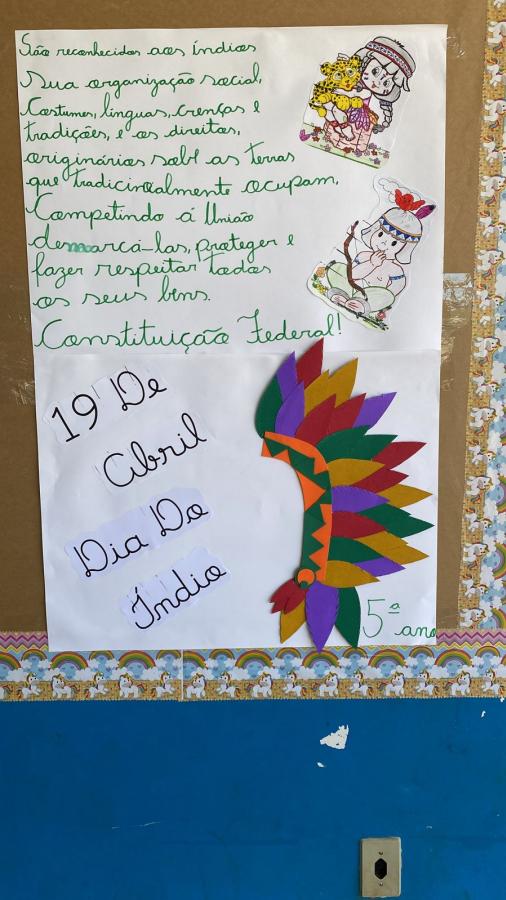 São reconhecidos aos índios
sua organização social,
Costumes, línguas, crenças e
tradições, e os direitos,
originários sobe as terras
que tradicinalmente ocupam,
Competindo á União
demarcá-las, proteger e
fazer respeitar todos
os seus bens.
Constituição Federal!
19 De
Abril
Dia Do
Índio
5ª ano